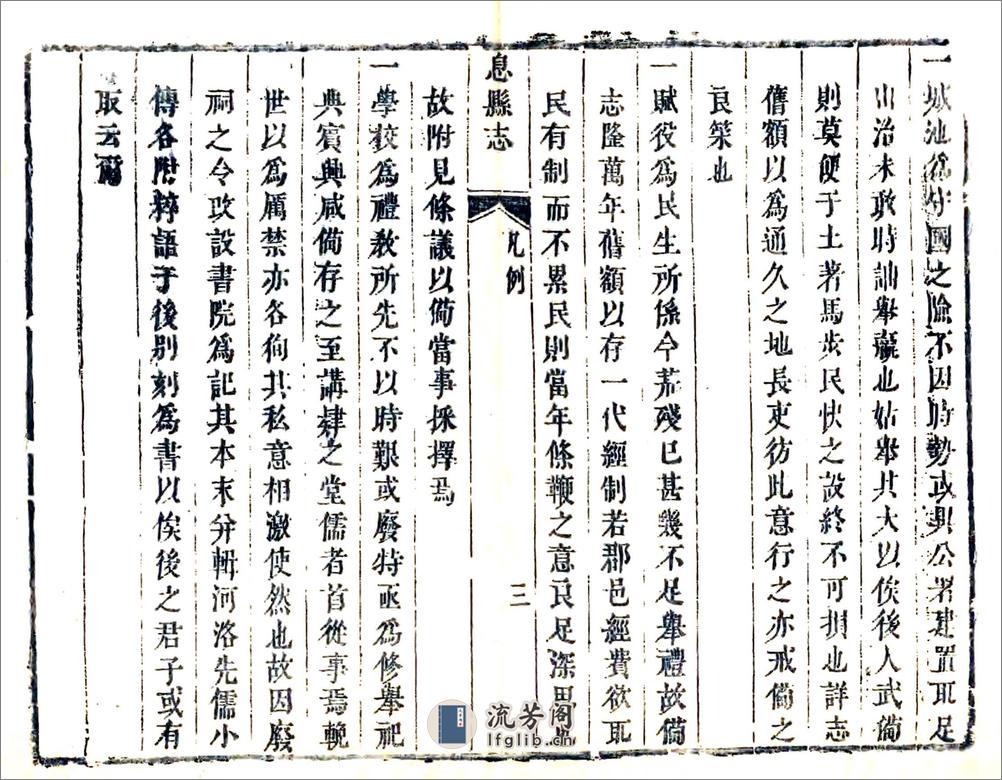 一城池爲守國之險不因時勢或與公署建置取足
出治未敢時詘舉羸也姑舉其大以俟後人武俻
則莫便于土著馬步民快之設終不可損也詳志
舊額以爲通久之地長吏彷此意行之亦戒俻之
良筞也
一賦役爲民生所係今荒殘已甚幾不足舉禮故俻
志隆萬年舊額以存一代經制若郡邑經費欲取
民有制而不累民則當年條鞭之意良足深思
息縣志
凡例
三
故附見條議以俻當事採擇焉
一學校爲禮教所先不以時艱或廢特亟爲修舉祀
典賓興咸俻存之至講肆之堂儒者首從事焉輓
世以爲厲禁亦各徇其私意相激使然也故因廢
祠之令改設書院爲記其本末分輯河洛先儒小
傳各附粹語于後别刻爲書以俟後之君子或有
取云爾
流芳阁
lfglib.cn